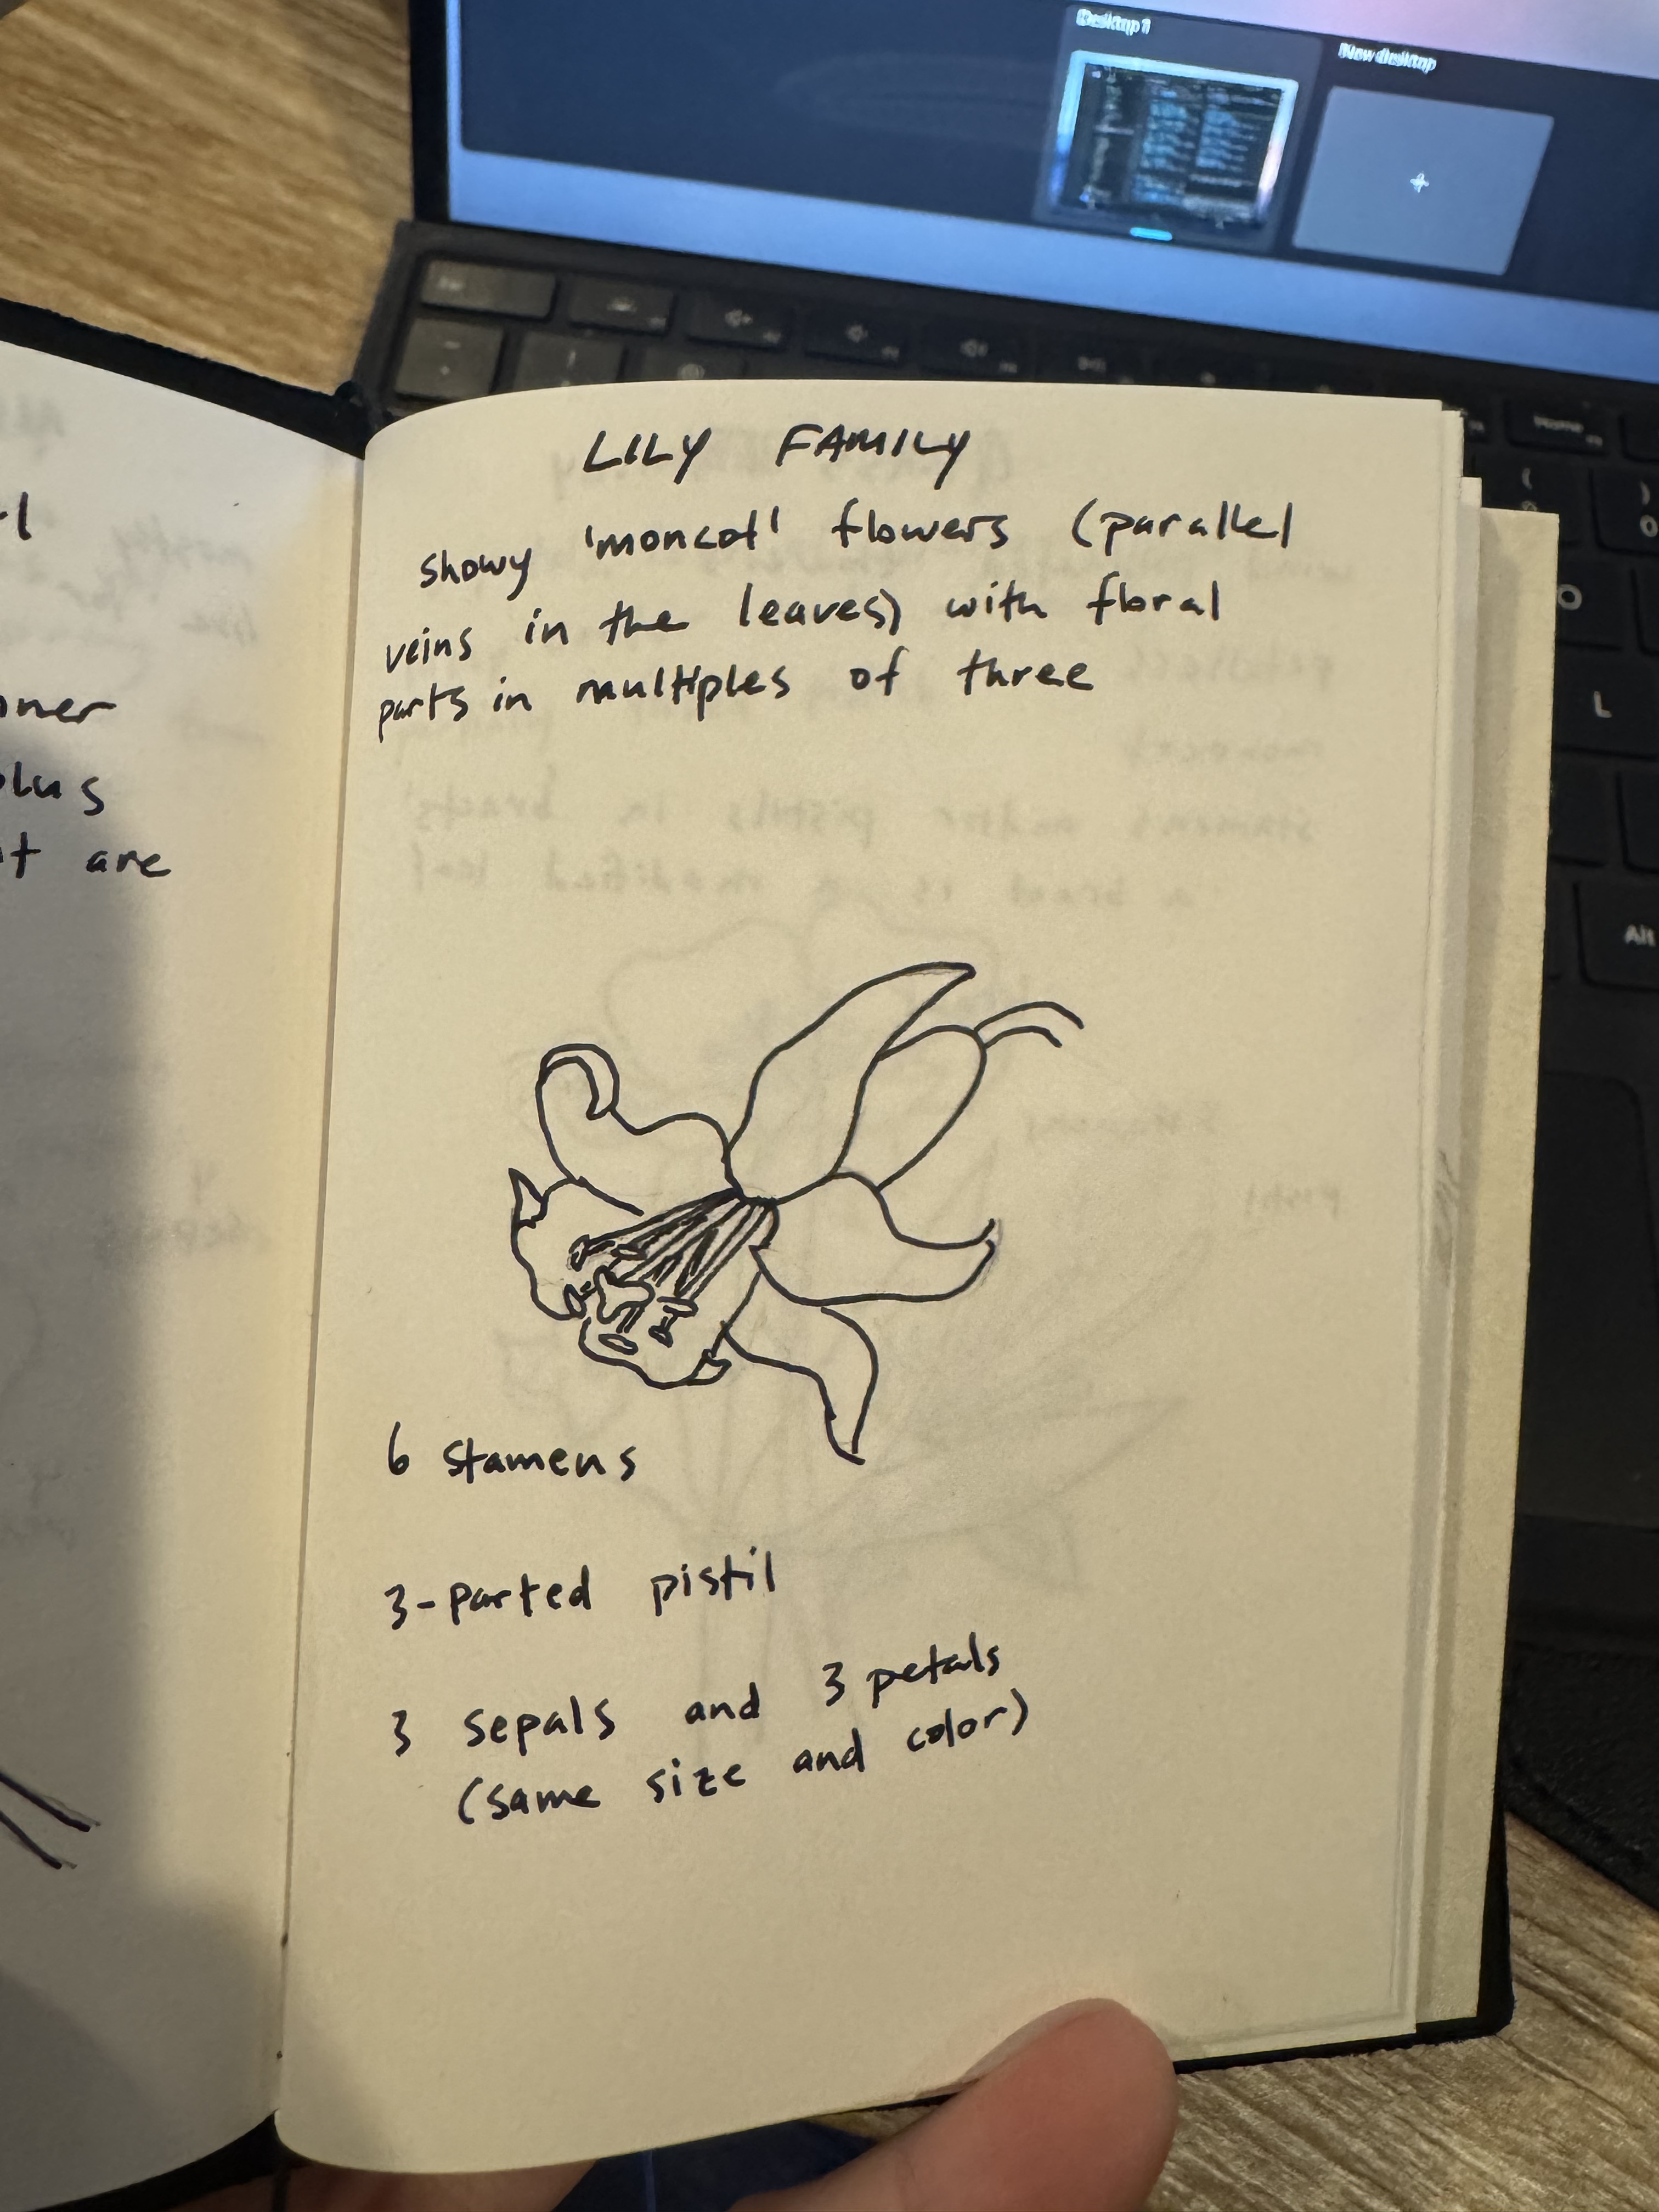 Desktop 1
New desktop
Home
Alt
L
O
LILY FAMILY
showy 'moncot' flowers (parallel
veins in the leaves) with floral
parts in multiples of three
6 stamens
3-parted pistil
3 sepals and 3 petals
(same size and color)
lus
t are